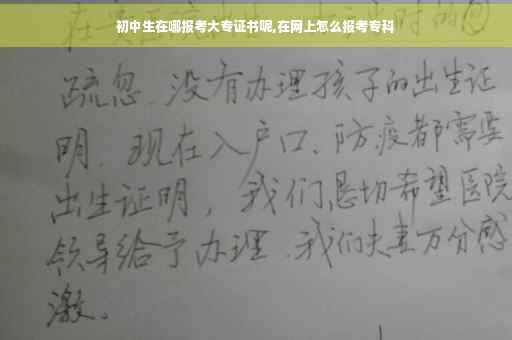 初中生在哪报考大专证书呢,在网上怎么报考专科
疏忽、没有办理孩子的出生证
明、现在入户口、防疫都需要
出生证明，我们恳切希望医院
领导给予办理、我们夫妻万分感
激。